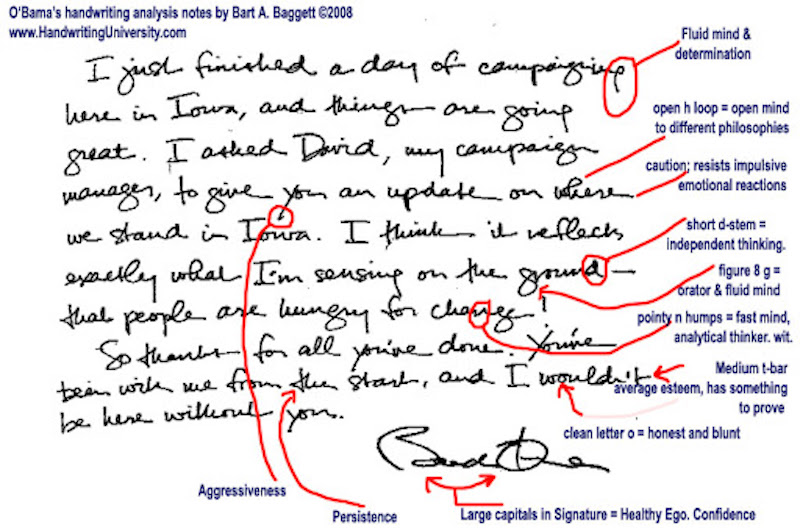 O'Bama's handwriting analysis notes by Bart A. Baggett ©2008
www.HandwritingUniversity.com
I just finished a day of campaigning
here in Iowa, and things are going
great. I asked David, my campaign
manager, to give you an update on where
we stand in Iowa. I think it reflects
exactly what I'm sensing on the ground —
that people are hungry for change!
So thanks for all you've done. You've
been with me from the start, and I wouldn't
be here without you.
Fluid mind &
determination
open h loop = open mind
to different philosophies
caution; resists impulsive
emotional reactions
short d-stem =
independent thinking.
figure 8 g =
orator & fluid mind
pointy n humps = fast mind,
analytical thinker. wit.
Medium t-bar
average esteem, has something
to prove
clean letter o = honest and blunt
Aggressiveness
Persistence
Large capitals in Signature = Healthy Ego. Confidence